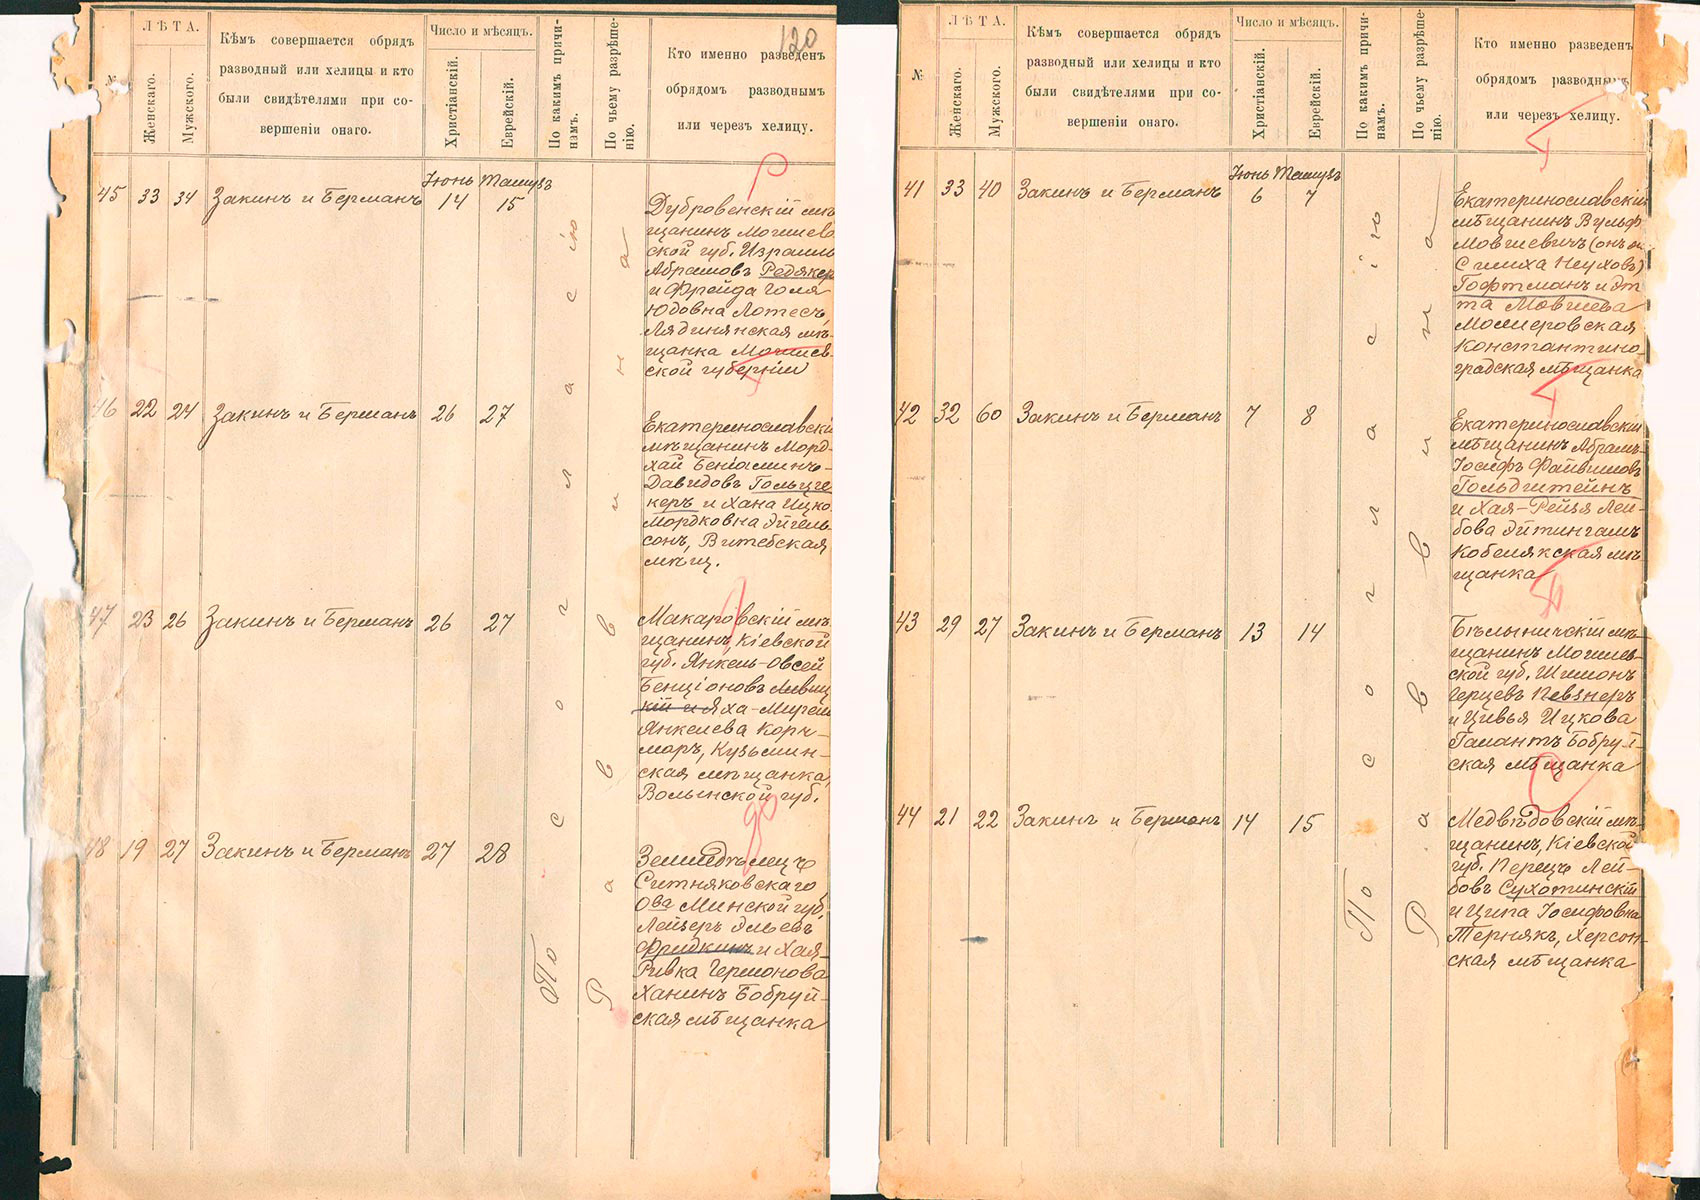 120
ЛѢТА.
Число и мѣсяцъ.
№
Женскаго.
Мужского.
Кѣмъ совершается обрядъ
разводный или хелицы и кто
были свидѣтелями при со-
вершеніи онаго.
Христіанскій.
Еврейскій.
По какимъ причи-
намъ.
По чьему разрѣше-
нію.
Кто именно разведенъ
обрядомъ разводнымъ
или черезъ хелицу.
Іюнь Тамузъ
45 33 34 Закинъ и Берманъ 14 15
Дубровенскій мѣ-
щанинъ Могилев
ской губ. Израиль
Абрамовъ Редякер
и Фрейда Голя
Юдовна Лотесъ,
Лядинянская мѣ-
щанка Могилев-
ской губерніи
46 22 24 Закинъ и Берманъ 26 27
Екатеринославскій
мѣщанинъ Морд-
хай Беніаминъ-
Давидовъ Гольцге
керъ и Хана Ицко
Мордковна Эйгель-
сонъ, Витебская
мѣщ.
47 23 26 Закинъ и Берманъ 26 27
Макаровскій мѣ-
щанинъ, Кіевской
губ. Янкель-Овсей
Бенціоновъ Левиц
кій и Яха-Мирем
Янкелева Корч-
маръ, Кузьмин-
ская мѣщанка,
Волынской губ.
48 19 27 Закинъ и Берманъ 27 28
Земледѣлецъ
Ситняковскаго
О-ва Минской губ.
Лейзеръ Эльевъ
Фридкинъ и Хая-
Ривка Гермонова
Ханинъ Бобруй-
ская мѣщанка
По согласію
Раввина
ЛѢТА.
Число и мѣсяцъ.
№
Женскаго.
Мужского.
Кѣмъ совершается обрядъ
разводный или хелицы и кто
были свидѣтелями при со-
вершеніи онаго.
Христіанскій.
Еврейскій.
По какимъ причи-
намъ.
По чьему разрѣше-
нію.
Кто именно разведенъ
обрядомъ разводнымъ
или черезъ хелицу.
Іюнь Тамузъ
41 33 40 Закинъ и Берманъ 6 7
Екатеринославскій
мѣщанинъ Вульф
Мовшевичъ (онъ же
Симха Неуховъ)
Гофтманъ и Эт
та Мовшева
Молеровская
Константино-
градская мѣщанка
42 32 60 Закинъ и Берманъ 7 8
Екатеринославскій
мѣщанинъ Абрамъ-
Іосифъ Файвишовъ
Гольдштейнъ
и Хая-Рейзя Лей-
бова Эйтингамъ
Кобелякская мѣ-
щанка
43 29 27 Закинъ и Берманъ 13 14
Бѣлыничскій мѣ-
щанинъ Могилев-
ской губ. Шимонъ
Герцевъ Певзнеръ
и Цивья Ицкова
Галантъ Бобруй-
ская мѣщанка
44 21 22 Закинъ и Берманъ 14 15
Медвѣдовскій мѣ-
щанинъ, Кіевской
губ. Перецъ Лей-
бовъ Сухотинскій
и Ципа Іосифовна
Тернякъ, Херсон-
ская мѣщанка
По согласію
Раввина